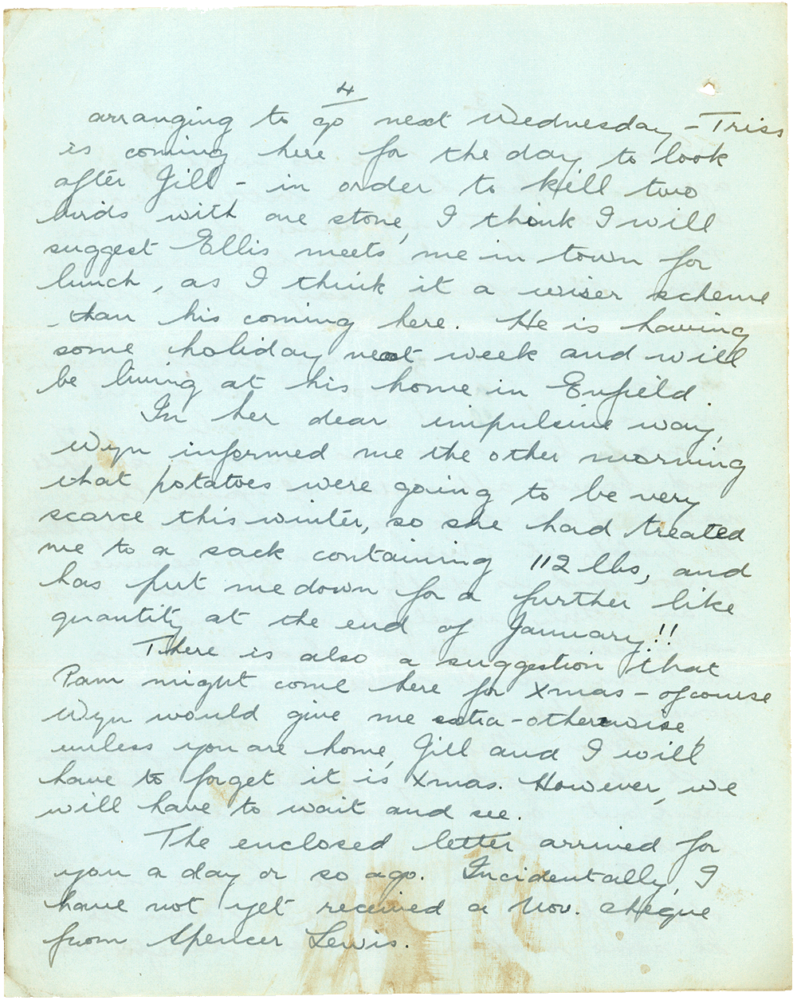 4
arranging to go next Wednesday – Triss
is coming here for the day to look
after Jill – in order to kill two
birds with one stone, I think I will
suggest Ellis meets me in town for
lunch, as I think it a wiser scheme
than his coming here. He is having
some holiday next week and will
be living at his home in Enfield.
In her dear impulsive way,
Wyn informed me the other morning
that potatoes were going to be very
scarce this winter, so she had treated
me to a sack containing 112 lbs, and
has put me down for a further like
quantity at the end of January!!
There is also a suggestion that
Pam might come here for Xmas – of course
Wyn would give me extra – otherwise
unless you are home, Jill and I will
have to forget it is Xmas. However, we
will have to wait and see.
The enclosed letter arrived for
you a day or so ago. Incidentally, I
have not yet received a Nov. cheque
from Spencer Lewis.